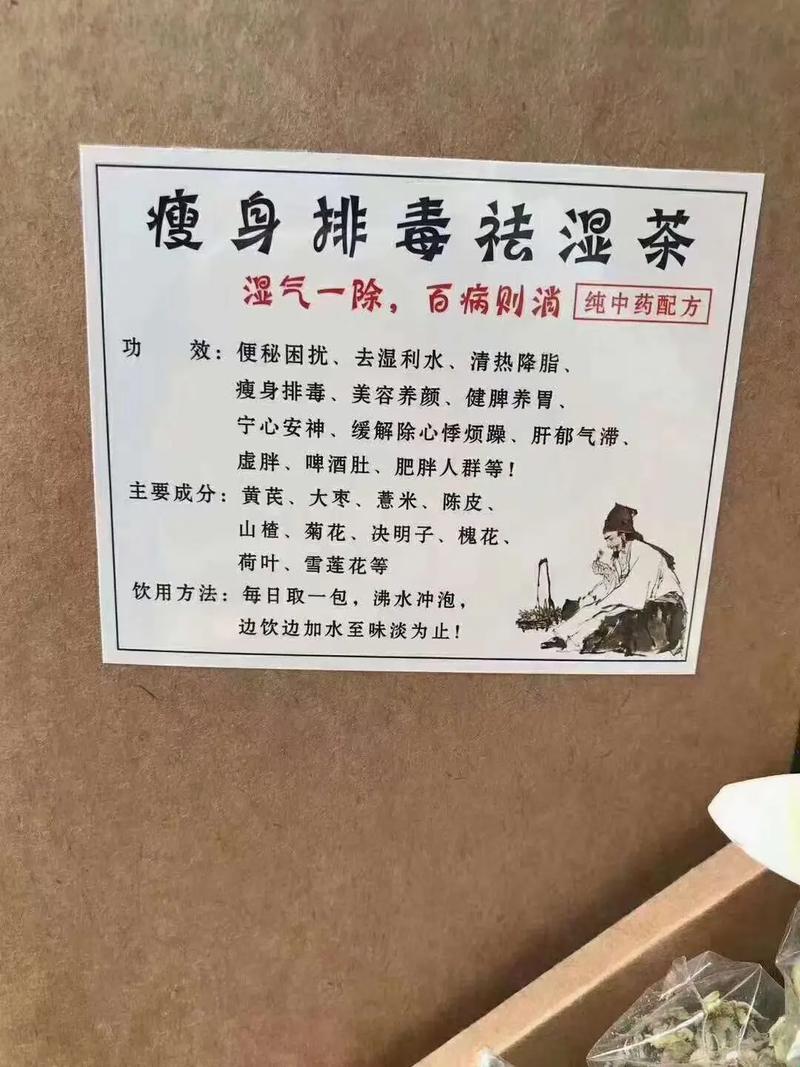 瘦身排毒祛湿茶
湿气一除，百病则消 纯中药配方
功 效：便秘困扰、去湿利水、清热降脂、
瘦身排毒、美容养颜、健脾养胃、
宁心安神、缓解除心悸烦躁、肝郁气滞、
虚胖、啤酒肚、肥胖人群等！
主要成分：黄芪、大枣、薏米、陈皮、
山楂、菊花、决明子、槐花、
荷叶、雪莲花等
饮用方法：每日取一包，沸水冲泡，
边饮边加水至味淡为止！